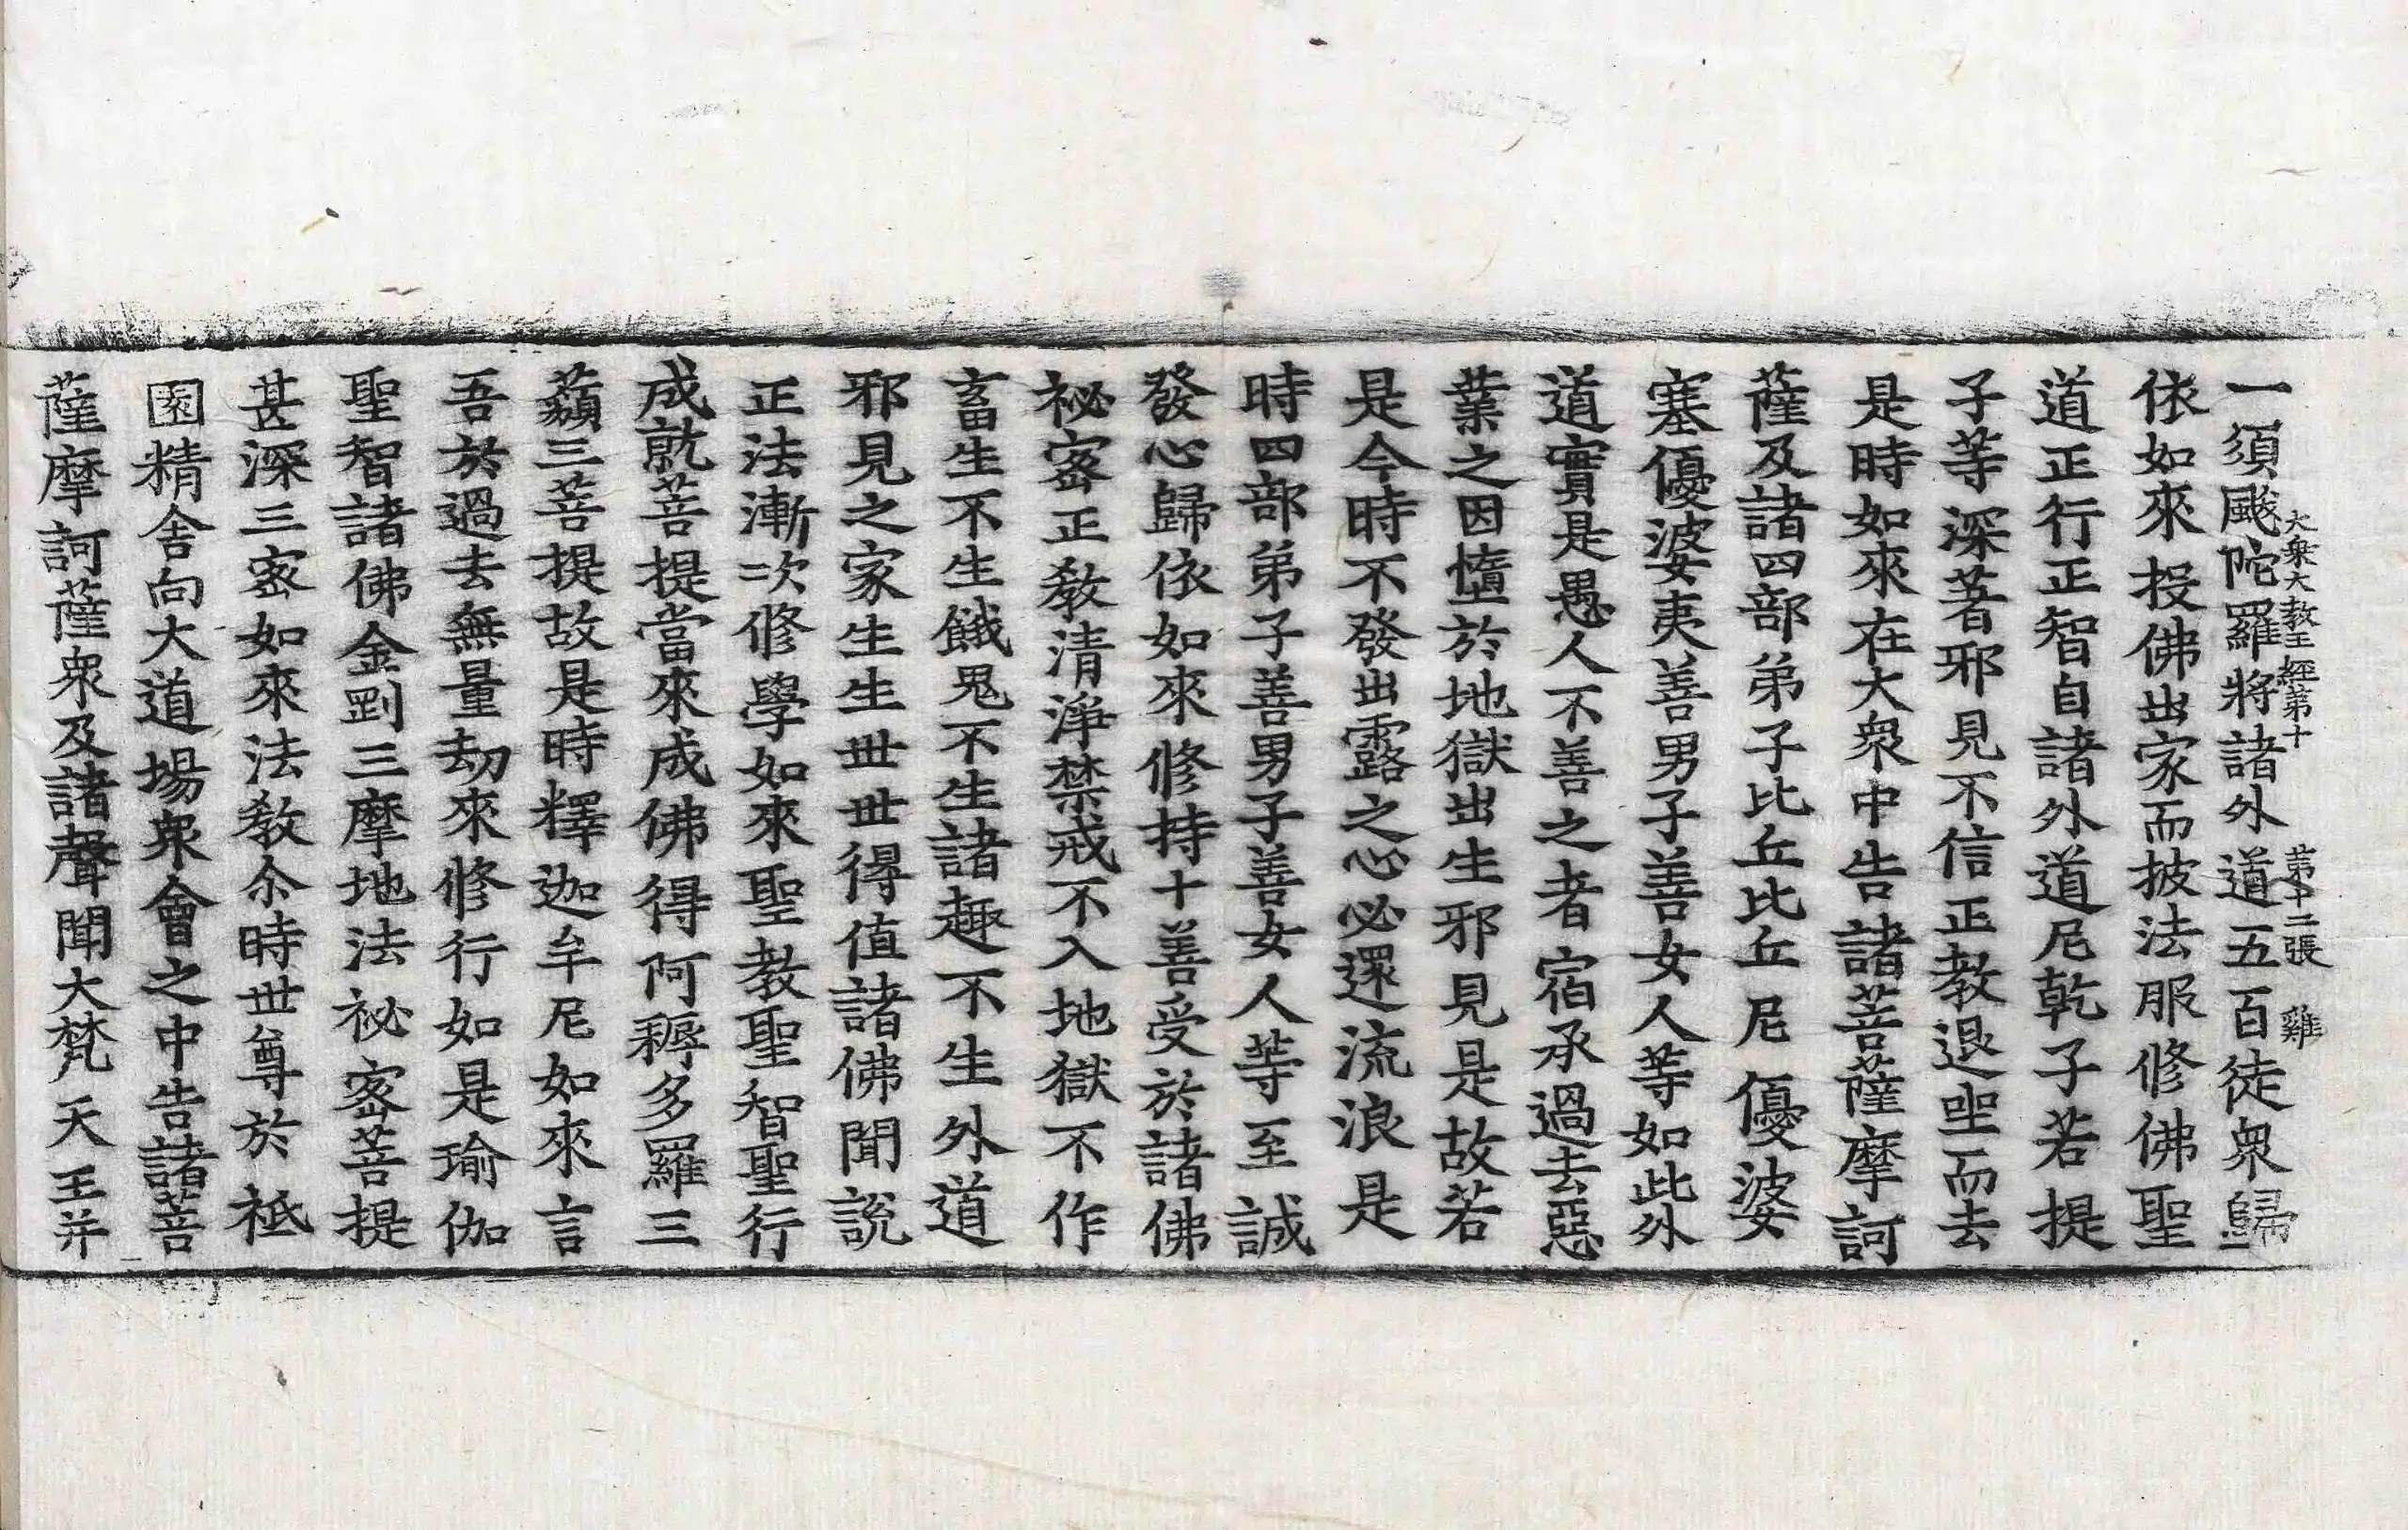 一須颰陀羅將諸外道五百徒衆歸
大衆大教王經第十 第十二張 雞
依如來投佛出家而披法服修佛聖
道正行正智自諸外道尼乾子若提
子等深著邪見不信正教退坐而去
是時如來在大衆中告諸菩薩摩訶
薩及諸四部弟子比丘比丘尼優婆
塞優婆夷善男子善女人等如此外
道實是愚人不善之者宿承過去惡
業之因墮於地獄出生邪見是故若
是今時不發出露之心必還流浪是
時四部弟子善男子善女人等至誠
發心歸依如來修持十善受於諸佛
祕密正教清淨禁戒不入地獄不作
畜生不生餓鬼不生諸趣不生外道
邪見之家生生世世得值諸佛聞說
正法漸次修學如來聖教聖智聖行
成就菩提當來成佛得阿耨多羅三
藐三菩提故是時釋迦牟尼如來言
吾於過去無量劫來修行如是瑜伽
聖智諸佛金剛三摩地法祕密菩提
甚深三密如來法教尒時世尊於祇
園精舍向大道場衆會之中告諸菩
薩摩訶薩衆及諸聲聞大梵天王并